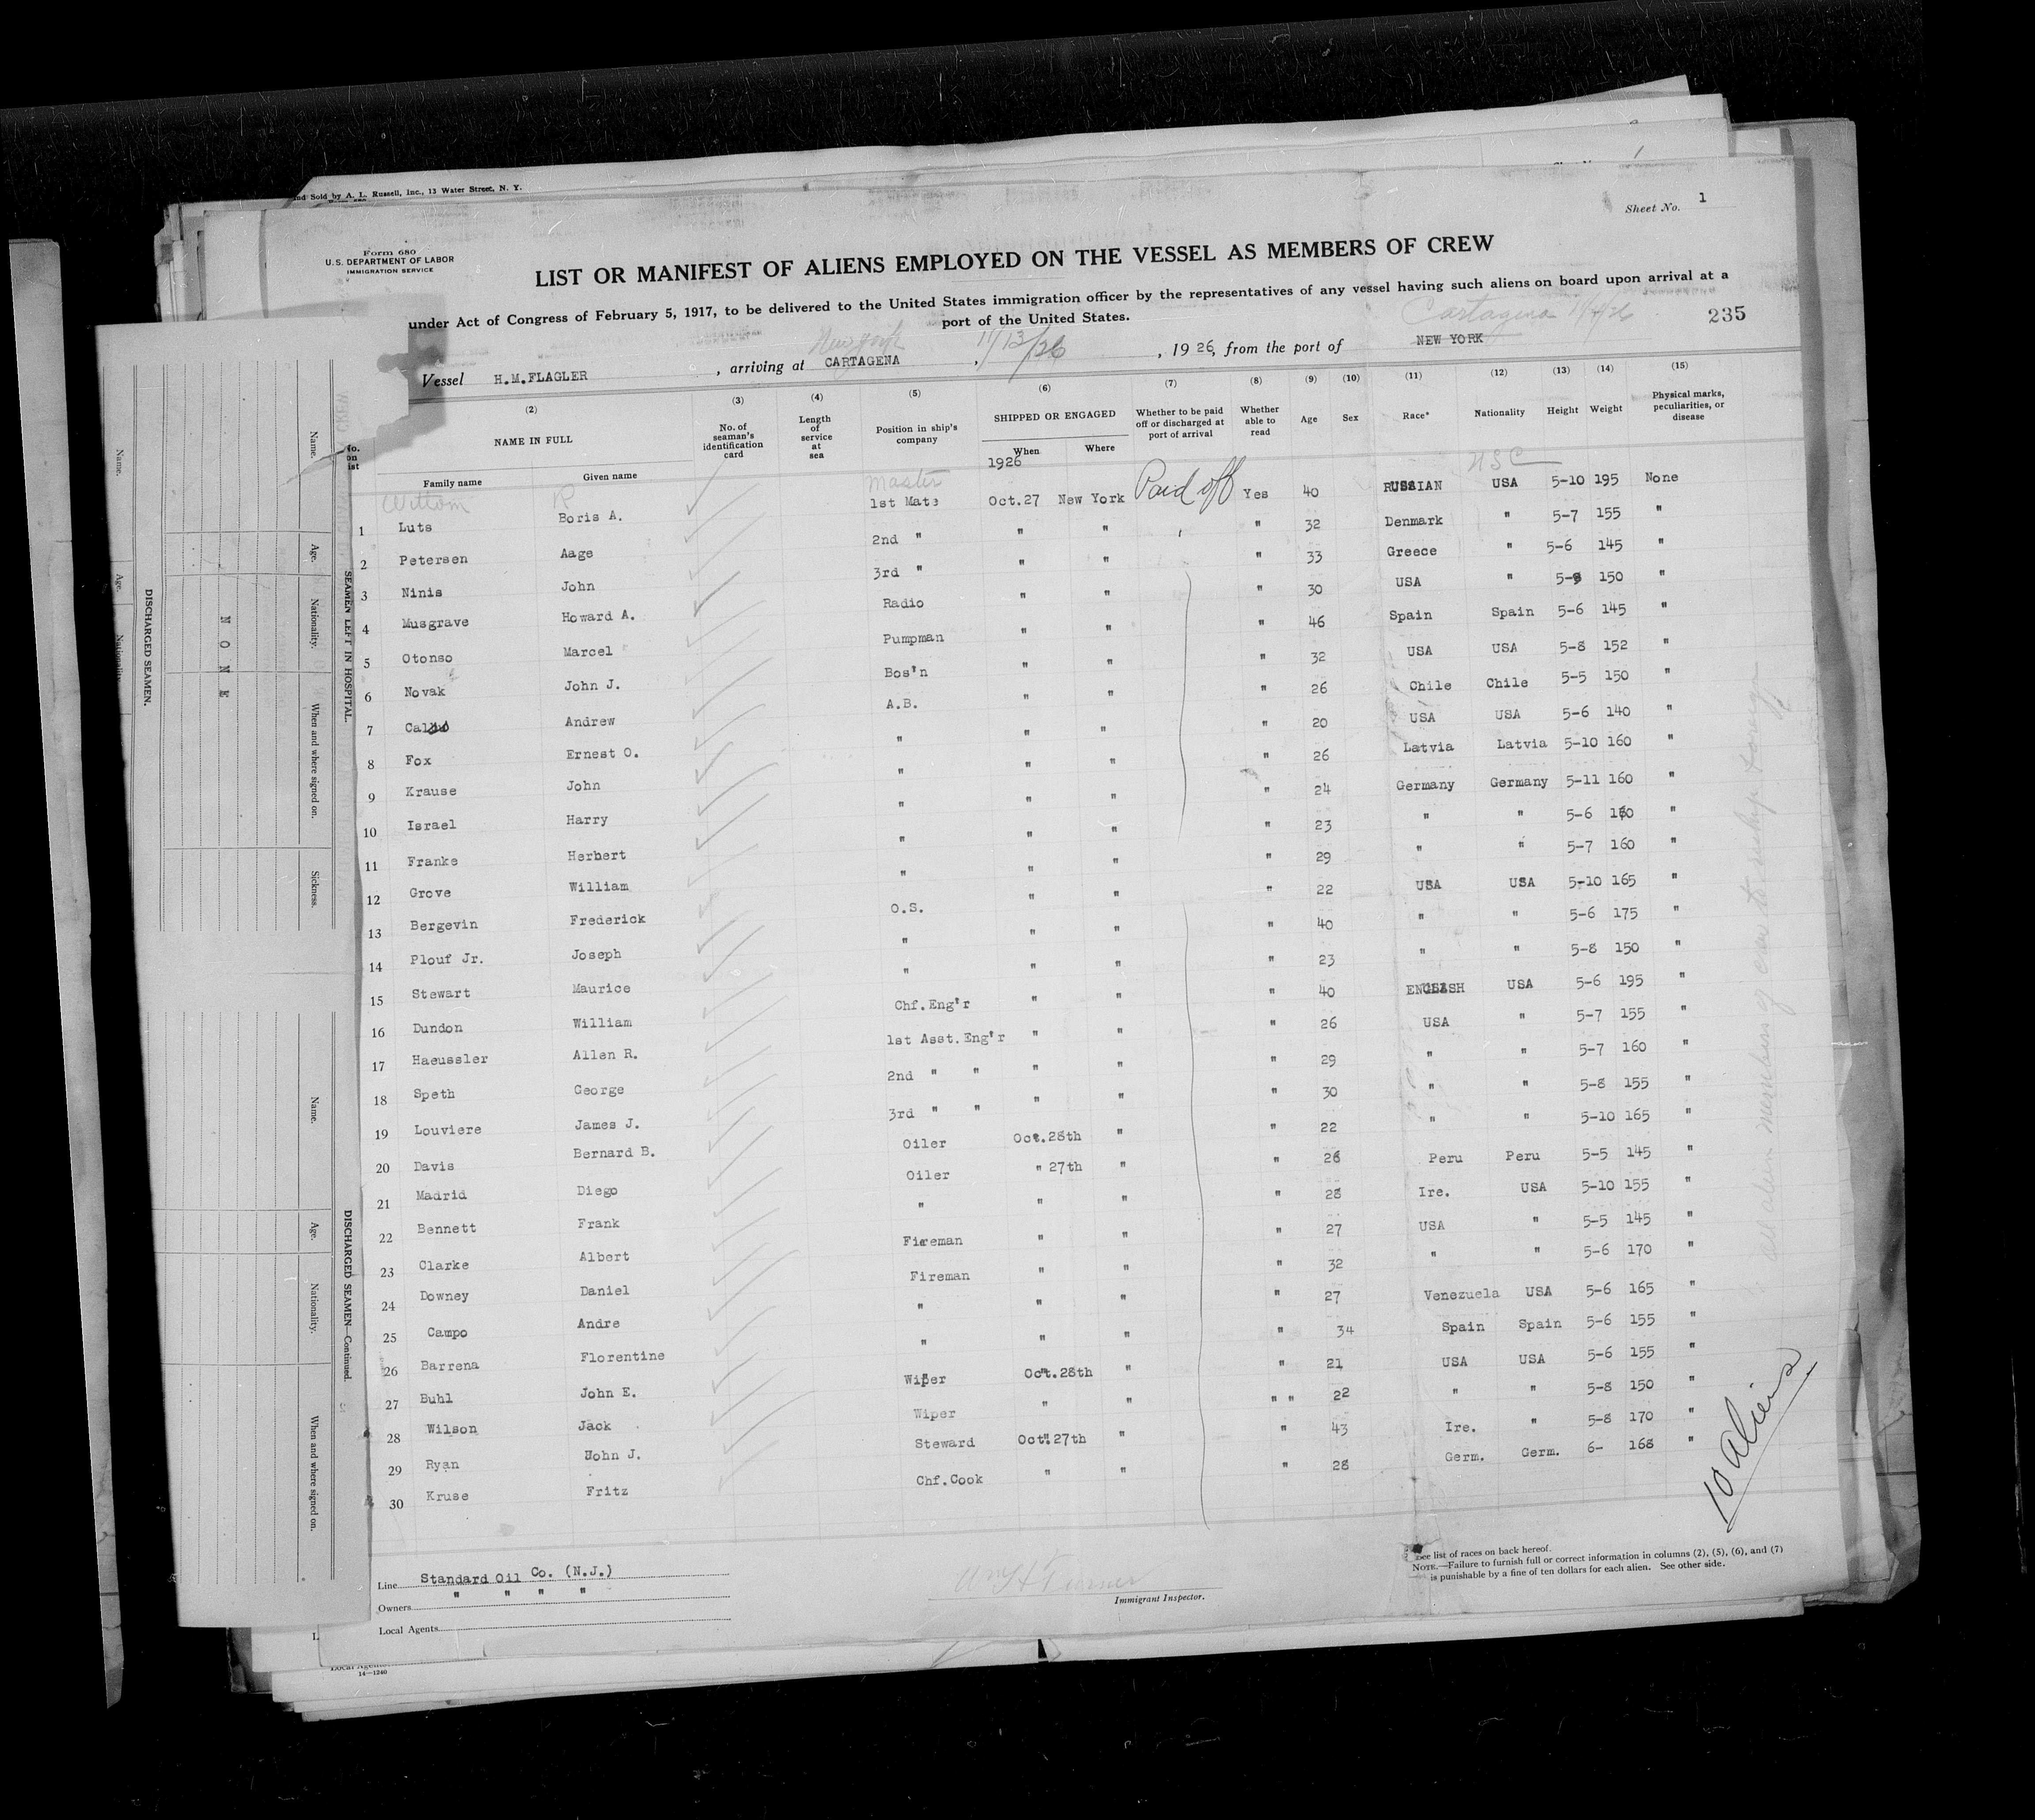 and Sold by A. L. Russell, Inc., 13 Water Street, N. Y.
Sheet No. 1
Form 680
U.S. DEPARTMENT OF LABOR
IMMIGRATION SERVICE
LIST OR MANIFEST OF ALIENS EMPLOYED ON THE VESSEL AS MEMBERS OF CREW
under Act of Congress of February 5, 1917, to be delivered to the United States immigration officer by the representatives of any vessel having such aliens on board upon arrival at a
port of the United States.
Cartagena
235
New York 11/13/26
Vessel H.M.FLAGLER , arriving at CARTAGENA , , 19 26, from the port of NEW YORK
(2) (3) (4) (5) (6) (7) (8) (9) (10) (11) (12) (13) (14) (15)
No. on list NAME IN FULL Family name Given name No. of seaman's identification card Length of service at sea Position in ship's company SHIPPED OR ENGAGED When Where Whether to be paid off or discharged at port of arrival Whether able to read Age Sex Race* Nationality Height Weight Physical marks, peculiarities, or disease
1926
Wittom R Master USC
1 Luts Boris A. 1st Mate Oct.27 New York Paid off Yes 40 RUSSIAN USA 5-10 195 None
2 Petersen Aage 2nd " " " " 32 Denmark " 5-7 155 "
3 Ninis John 3rd " " " " 33 Greece " 5-6 145 "
4 Musgrave Howard A. Radio " " " 30 USA " 5-8 150 "
5 Otonso Marcel Pumpman " " " 46 Spain Spain 5-6 145 "
6 Novak John J. Bos'n " " " 32 USA USA 5-8 152 "
7 Andrew A.B. " " " 26 Chile Chile 5-5 150 "
8 Fox Ernest O. " " " " 20 USA USA 5-6 140 "
9 Krause John " " " " 26 Latvia Latvia 5-10 160 "
10 Israel Harry " " " " 24 Germany Germany 5-11 160 "
11 Franke Herbert " " " " 23 " " 5-6 160 "
12 Grove William " " " " 29 " " 5-7 160 "
13 Bergevin Frederick O.S. " " " 22 USA USA 5-10 165 "
14 Plouf Jr. Joseph " " " " 40 " " 5-6 175 "
15 Stewart Maurice " " " " 23 " " 5-8 150 "
16 Dundon William Chf.Eng'r " " " 40 ENGLISH USA 5-6 195 "
17 Haeussler Allen R. 1st Asst.Eng'r " " " 26 USA " 5-7 155 "
18 Speth George 2nd " " " " " 29 " " 5-7 160 "
19 Louviere James J. 3rd " " " " " 30 " " 5-8 155 "
20 Davis Bernard B. Oiler Oct.28th " " 22 " " 5-10 165 "
21 Madrid Diego Oiler " 27th " " 26 Peru Peru 5-5 145 "
22 Bennett Frank " " " " 28 Ire. USA 5-10 155 "
23 Clarke Albert Fireman " " " 27 USA " 5-5 145 "
24 Downey Daniel Fireman " " " 32 " " 5-6 170 "
25 Campo Andre " " " " 27 Venezuela USA 5-6 165 "
26 Barrena Florentine " " " " 34 Spain Spain 5-6 155 "
27 Buhl John E. Wiper Oct.28th " " 21 USA USA 5-6 155 "
28 Wilson Jack Wiper " " " " 22 " " 5-8 150 "
29 Ryan John J. Steward Oct.27th " " 43 Ire. " 5-8 170 "
30 Kruse Fritz Chf.Cook " " " 28 Germ. Germ. 6- 168 "
10 aliens
Line Standard Oil Co. (N.J.)
Owners " " " "
Local Agents
Immigrant Inspector.
See list of races on back hereof.
NOTE.—Failure to furnish full or correct information in columns (2), (5), (6), and (7)
is punishable by a fine of ten dollars for each alien. See other side.
14—1240
SEAMEN LEFT IN HOSPITAL.
Name. Age. Nationality. When and where signed on. Sickness.
NONE
DISCHARGED SEAMEN.
Name. Age. Nationality.
DISCHARGED SEAMEN—Continued.
Name. Age. Nationality. When and where signed on.